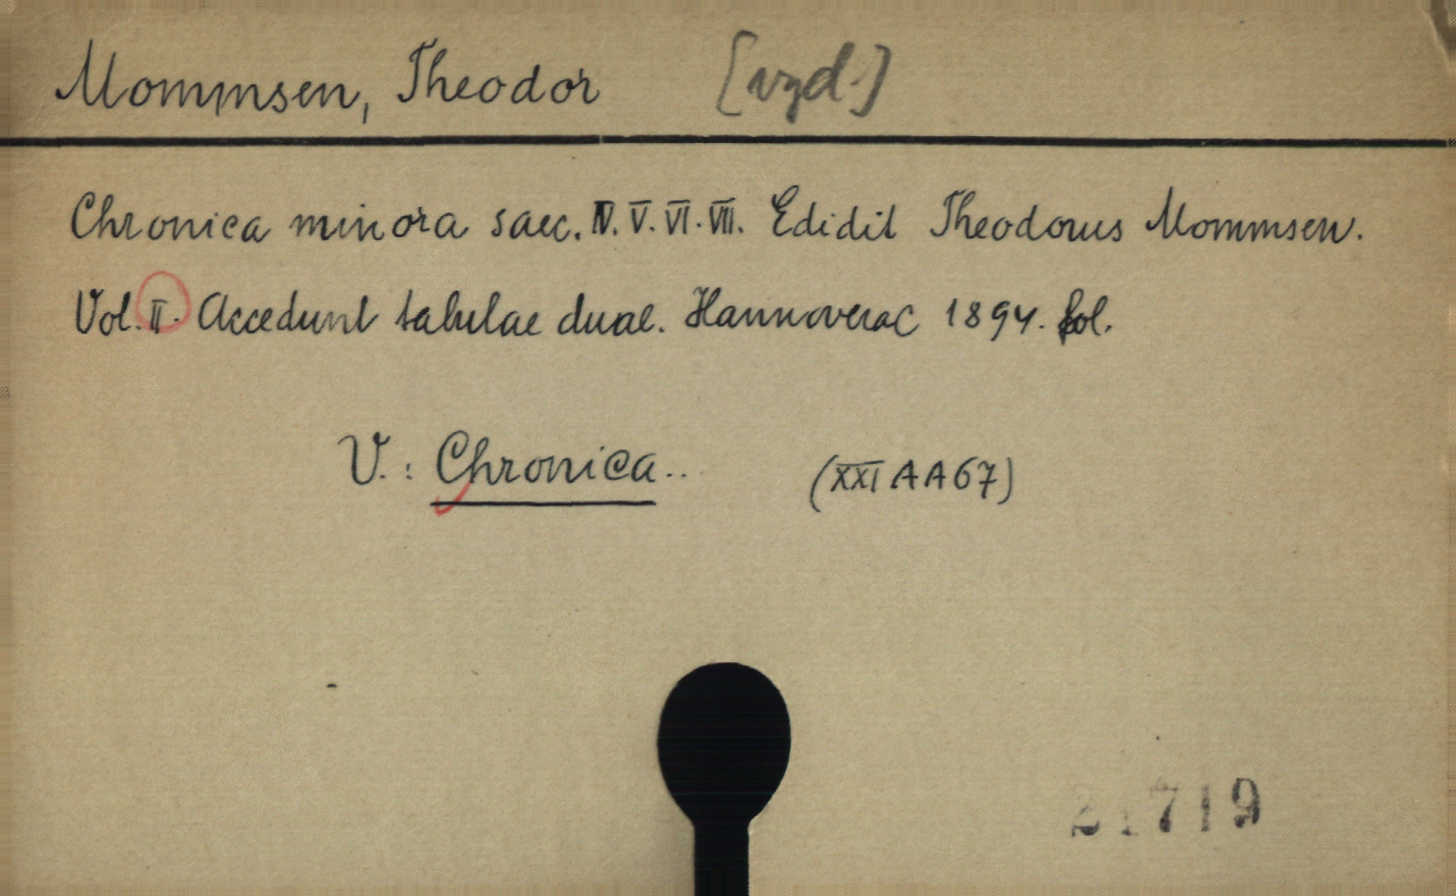 Mommsen, Theodor [vyd.]
Chronica minora saec. IV. V. VI. VII. Edidit Theodorus Mommsen.
Vol. II. Accedunt tabulae duae. Hannoverae 1894. fol.
V. : Chronica.. (XXI AA67)
21719